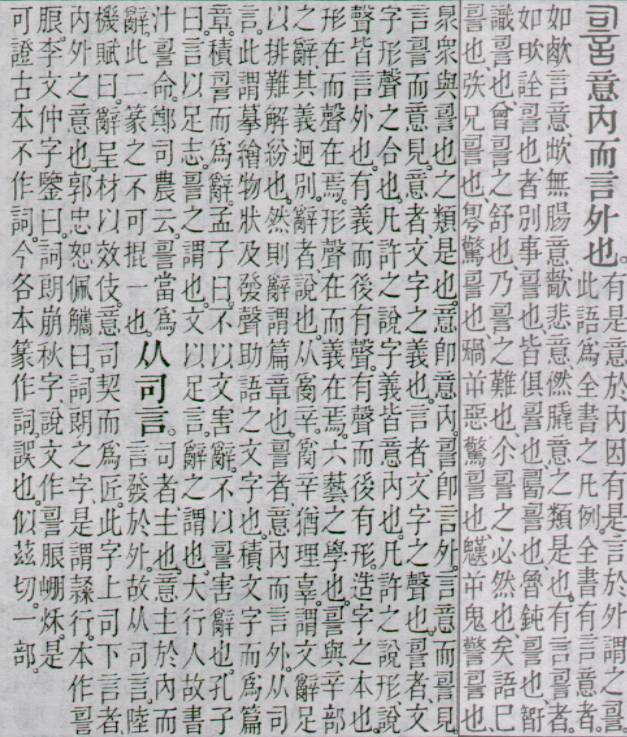 䛐意內而言外也。有是意於內因有是言於外謂之䛐。
此語爲全書之凡例。全書有言意者。
如歑言意欪無腸意歗悲意㦣意之類是也。有言䛐者。
如吹詮䛐也者別事䛐也皆俱䛐也䛐也魯鈍䛐也
識䛐也曾䛐之舒也乃䛐之難也尒䛐之必然也矣語已
䛐也矤兄䛐也驚䛐也屰惡驚䛐也屰鬼驚䛐也
眾與䛐也之類是也。意卽意內。䛐卽言外。言意而䛐見
言䛐而意見。意者文字之義也。言者文字之聲也。䛐者文
字形聲之合也。凡許之說字義皆意內也。凡許之說形說
聲皆言外也。有義而後有聲。有聲而後有形。造字之本也。
形在而聲在焉。形聲在而義在焉。六藝之學也。䛐與辛部
之辭其義迥別。辭者說也。从𤔔辛。𤔔辛猶理辜。謂文辭足
以排難解紛也。然則辭謂篇章也。䛐者意內而言外。从司
言。此謂摹繪物狀及發聲助語之文字也。積文字而爲篇
章。積䛐而爲辭。孟子曰。不以文害辭。不以䛐害辭也。孔子
曰。言以足志。䛐之謂也。文以足言。辭之謂也。大行人故書
汁䛐命。鄭司農云。䛐當爲
辭。此二篆之不可掍一也。
从司言。司者主也。意主於內而
言發於外。故从司言。陸
機賦曰。辭呈材以效伎。意司契而爲匠。此字上司下言者。
內外之意也。郭忠恕佩觿曰。詞朗之字。是謂隸行。本作䛐
㫰。李文仲字鑒曰。詞朗崩秋字。說文作䛐㫰𡹔秌。是
可證古本不作詞。今各本篆作詞。誤也。似茲切。一部。